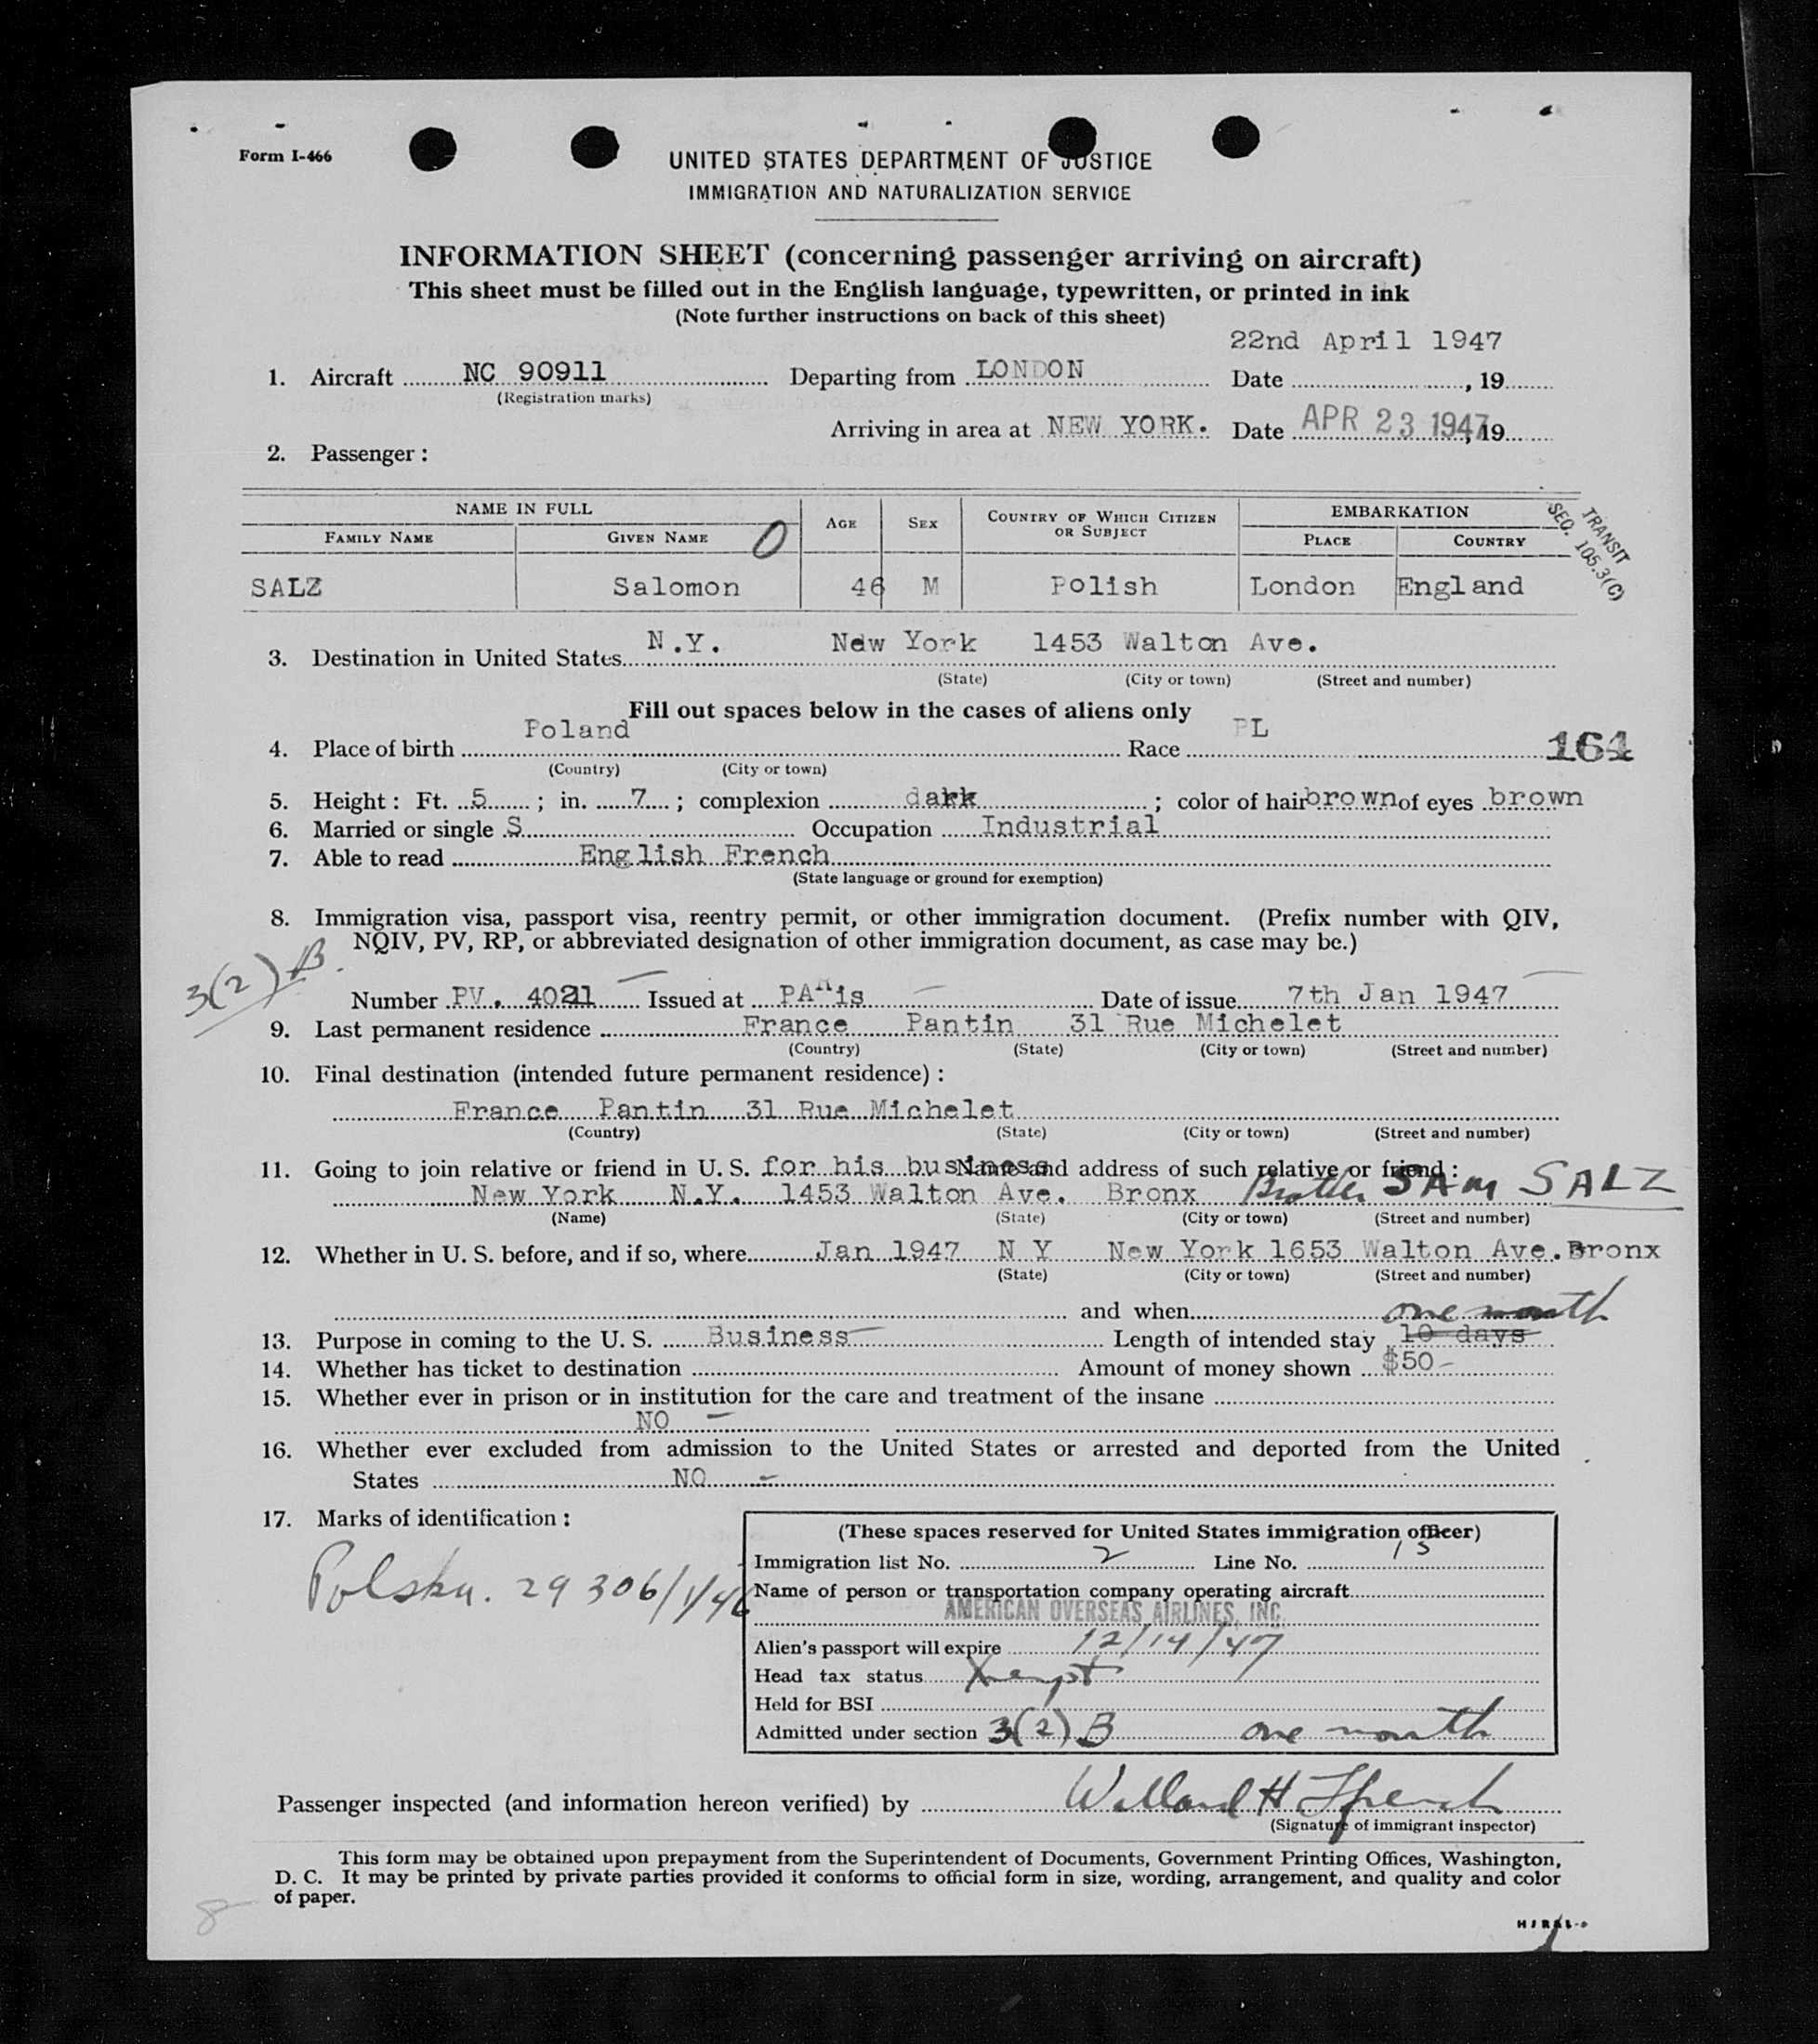 Form I-466
UNITED STATES DEPARTMENT OF JUSTICE
IMMIGRATION AND NATURALIZATION SERVICE
INFORMATION SHEET (concerning passenger arriving on aircraft)
This sheet must be filled out in the English language, typewritten, or printed in ink
(Note further instructions on back of this sheet)
22nd April 1947
1. Aircraft NC 90911 Departing from LONDON Date , 19
(Registration marks)
Arriving in area at NEW YORK. Date APR 23 1947, 19
2. Passenger:
NAME IN FULL AGE SEX COUNTRY OF WHICH CITIZEN OR SUBJECT EMBARKATION
FAMILY NAME GIVEN NAME O PLACE COUNTRY
TRANSIT
SEC. 105.3(C)
SALZ Salomon 46 M Polish London England
3. Destination in United States N.Y. New York 1453 Walton Ave.
(State) (City or town) (Street and number)
Fill out spaces below in the cases of aliens only
4. Place of birth Poland Race PL
164
(Country) (City or town)
5. Height: Ft. 5 ; in. 7 ; complexion dark ; color of hair brown of eyes brown
6. Married or single S Occupation Industrial
7. Able to read English French
(State language or ground for exemption)
8. Immigration visa, passport visa, reentry permit, or other immigration document. (Prefix number with QIV,
NQIV, PV, RP, or abbreviated designation of other immigration document, as case may be.)
3(2) B.
Number PV. 4021 Issued at PARis Date of issue 7th Jan 1947
9. Last permanent residence France Pantin 31 Rue Michelet
(Country) (State) (City or town) (Street and number)
10. Final destination (intended future permanent residence):
France Pantin 31 Rue Michelet
(Country) (State) (City or town) (Street and number)
11. Going to join relative or friend in U. S. for his business Name and address of such relative or friend:
New York N.Y. 1453 Walton Ave. Bronx Brother SAM SALZ
(Name) (State) (City or town) (Street and number)
12. Whether in U. S. before, and if so, where Jan 1947 N Y New York 1653 Walton Ave. Bronx
(State) (City or town) (Street and number)
and when
one month
13. Purpose in coming to the U. S. Business Length of intended stay 10 days
14. Whether has ticket to destination Amount of money shown $50-
15. Whether ever in prison or in institution for the care and treatment of the insane
NO -
16. Whether ever excluded from admission to the United States or arrested and deported from the United
States NO -
17. Marks of identification:
Polska. 29 306/1/46
(These spaces reserved for United States immigration officer)
Immigration list No. 2 Line No. 13
Name of person or transportation company operating aircraft
AMERICAN OVERSEAS AIRLINES, INC.
Alien's passport will expire 12/14/47
Head tax status Xempt
Held for BSI
Admitted under section 3(2) B one month
Passenger inspected (and information hereon verified) by
(Signature of immigrant inspector)
This form may be obtained upon prepayment from the Superintendent of Documents, Government Printing Offices, Washington,
D. C. It may be printed by private parties provided it conforms to official form in size, wording, arrangement, and quality and color
of paper.
8